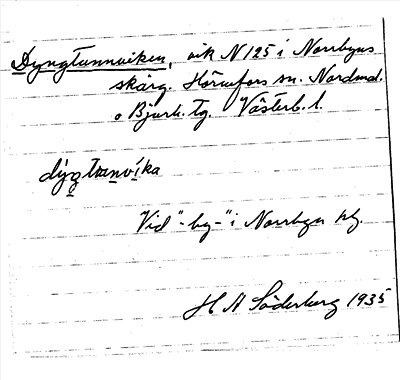 Dyngtunnviken, vik N 125 i Norrbyns
skärg. Hörnefors sn. Nordmal.
o Bjurh. tg. Västerb. l.
dýgtanvíka
Vid "-by-" i Norrbyn
H A Söderberg 1935